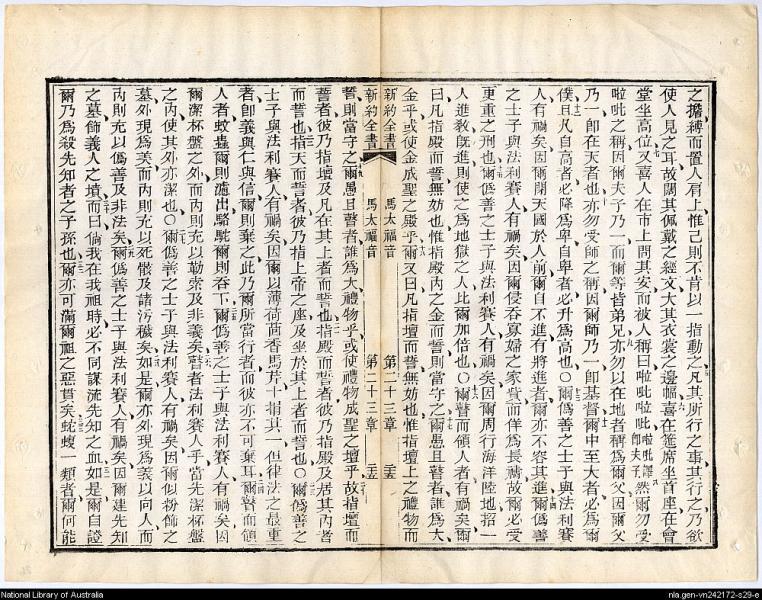 之擔縛而置人肩上惟己則不肯以一指動之凡其所行之事其行之乃欲
使人見之耳故闊其佩戴之經文大其衣裳之邊幅喜在筵席坐首座在會
堂坐高位又喜人在市上問其安而被人稱曰啦吡啦吡啦吡譯即夫子然爾勿受
啦吡之稱因爾夫子乃一而爾等皆弟兄亦勿以在地者稱爲爾父因爾父
乃一即在天者也亦勿受師之稱因爾師乃一即基督爾中至大者必爲爾
僕且凡自高者必降爲卑自卑者必升爲高也〇爾僞善之士子與法利賽
人有禍矣因爾閉天國於人前爾自不進有將進者爾亦不容其進爾僞善
之士子與法利賽人有禍矣因爾侵吞寡婦之家貲而佯爲長禱故爾必受
更重之刑也爾僞善之士子與法利賽人有禍矣因爾周行海洋陸地招一
人進教既進則使之爲地獄之人比爾加倍也〇爾瞽而領人者有禍矣爾
曰凡指殿而誓無妨也惟指殿內之金而誓則當守之爾愚且瞽者誰爲大
金乎或使金成聖之殿乎爾又曰凡指壇而誓無妨也惟指壇上之禮物而
新約全書 馬太福音 第二十三章
新約全書 馬太福音 第二十三章
誓則當守之爾愚且瞽者誰爲大禮物乎或使禮物成聖之壇乎故指壇而
誓者彼乃指壇及凡在其上者而誓也指殿而誓者彼乃指殿及居其內者
而誓也指天而誓者彼乃指上帝之座及坐於其上者而誓也〇爾僞善之
士子與法利賽人有禍矣因爾以薄荷茴香馬芹十捐其一但律法之最重
者即義與仁與信爾則棄之此乃爾所當行者而彼亦不可棄耳爾瞽而領
人者蚊蟲爾則濾出駱駝爾則吞下爾僞善之士子與法利賽人有禍矣因
爾潔杯盤之外而內則充以勒索及非義矣瞽者法利賽人乎當先潔杯盤
之內使其外亦潔也〇爾僞善之士子與法利賽人有禍矣因爾似粉飾之
墓外現爲美而內則充以死骸及諸污穢矣如是爾亦外現爲義以向人而
內則充以僞善及非法矣爾僞善之士子與法利賽人有禍矣因爾建先知
之墓飾義人之墳而曰倘我在我祖時必不同謀流先知之血如是爾自證
爾乃爲殺先知者之子孫也爾亦可滿爾祖之惡貫矣蛇蝮一類者爾何能
National Library of Australia
nla.gen-vn242172-s29-e